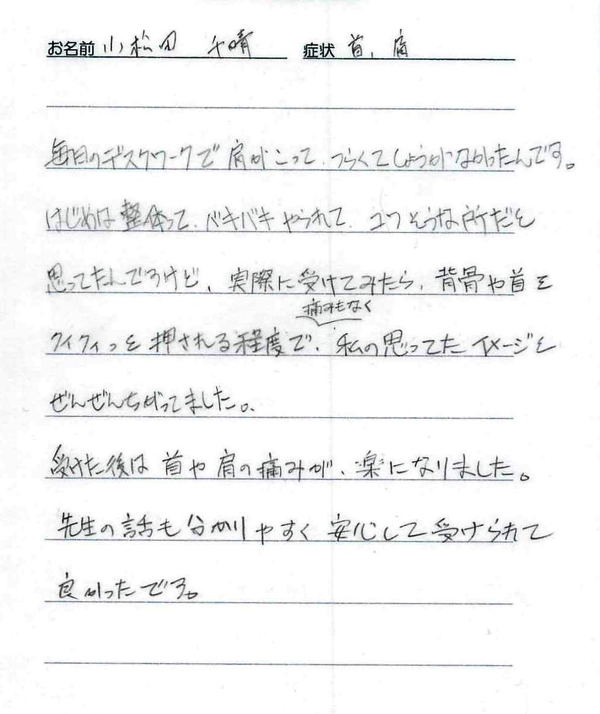 お名前 小松田 千晴 症状 首、肩
毎日のデスクワークで肩がこって、つらくてしょうがなかったんです。
はじめは整体って、バキバキやられて、コワそうな所だと
思ってたんですけど、実際に受けてみたら、背骨や首を
痛みもなく
クイクイっと押される程度で、私の思ってたイメージと
ぜんぜんちがってました。
受けた後は首や肩の痛みが、楽になりました。
先生の話も分かりやすく安心して受けられて
良かったです。